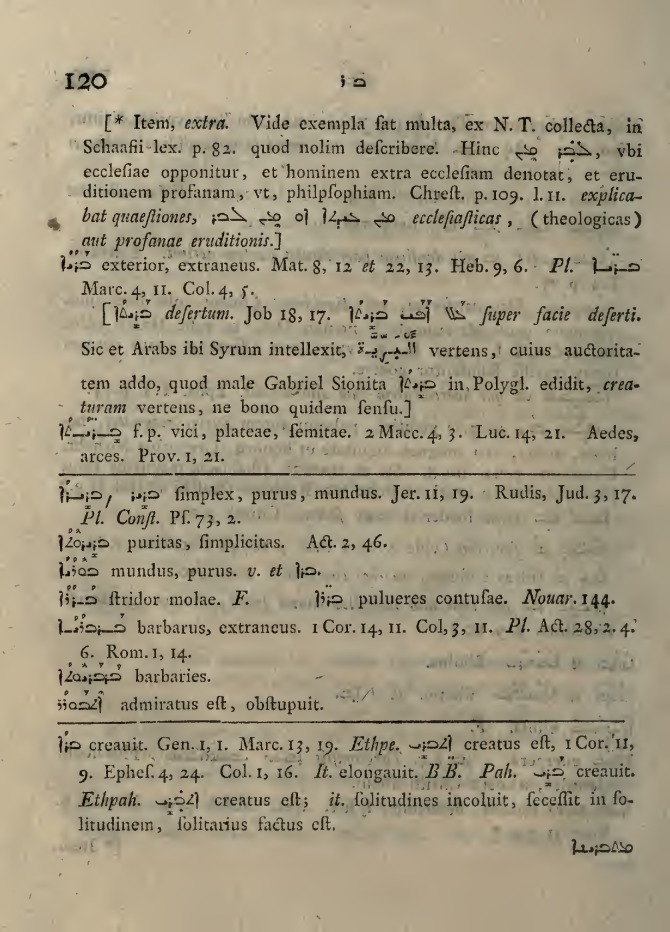 120 ܒ ܪ
[* Item, extra. Vide exempla ſat multa, ex N. T. collecta, in
Schaafii lex. p. 82. quod nolim deſcribere. Hinc ܡܢ ܠܒܪ, vbi
eccleſiae opponitur, et hominem extra eccleſiam denotat, et eru-
ditionem profanam, vt, philpſophiam. Chreſt. p. 109. l. 11. explica-
bat quaeſtiones, ܡܢ ܠܒܪ ܐܘ ܡܢ eccleſiaſticas, (theologicas)
aut profanae eruditionis.]
ܒܪܝܐ exterior, extraneus. Mat. 8, 12 et 22, 13. Heb. 9, 6. Pl. ܒܪܝܐ
Marc. 4, 11. Col. 4, 5.
[ܒܪܝܬܐ deſertum. Job 18, 17. ܥܠ ܐܦܝ ܒܪܝܬܐ ſuper facie deſerti.
Sic et Arabs ibi Syrum intellexit, vertens, cuius auctorita-
tem addo, quod male Gabriel Sionita ܒܪܝܬܐ in Polygl. edidit, crea-
turam vertens, ne bono quidem ſenſu.]
ܒܪܝܬܐ f. p. vici, plateae, ſemitae. 2 Macc. 4, 3. Luc. 14, 21. Aedes,
arces. Prov. 1, 21.
ܒܪܝܪ, ܒܪܝܪܐ ſimplex, purus, mundus. Jer. 11, 19. Rudis, Jud. 3, 17.
Pl. Conſt. Pſ. 73, 2.
ܒܪܝܪܘܬܐ puritas, ſimplicitas. Act. 2, 46.
mundus, purus. v. et ܒܪܐ.
ſtridor molae. F. pulueres contuſae. Nouar. 144.
ܒܪܒܪܝܐ barbarus, extraneus. 1 Cor. 14, 11. Col, 3, 11. Pl. Act. 28, 2. 4.
6. Rom. 1, 14.
ܒܪܒܪܝܘܬܐ barbaries.
admiratus eſt, obſtupuit.
ܒܪܐ creauit. Gen. 1, 1. Marc. 13, 19. Ethpe. ܐܬܒܪܝ creatus eſt, 1 Cor. 11,
9. Epheſ. 4, 24. Col. 1, 16. It. elongauit. BB. Pah. ܒܪܝ creauit.
Ethpah. ܐܬܒܪܝ creatus eſt; it. ſolitudines incoluit, ſeceſſit in ſo-
litudinem, ſolitarius factus eſt.
ܡܬܒܪܝܢܐ